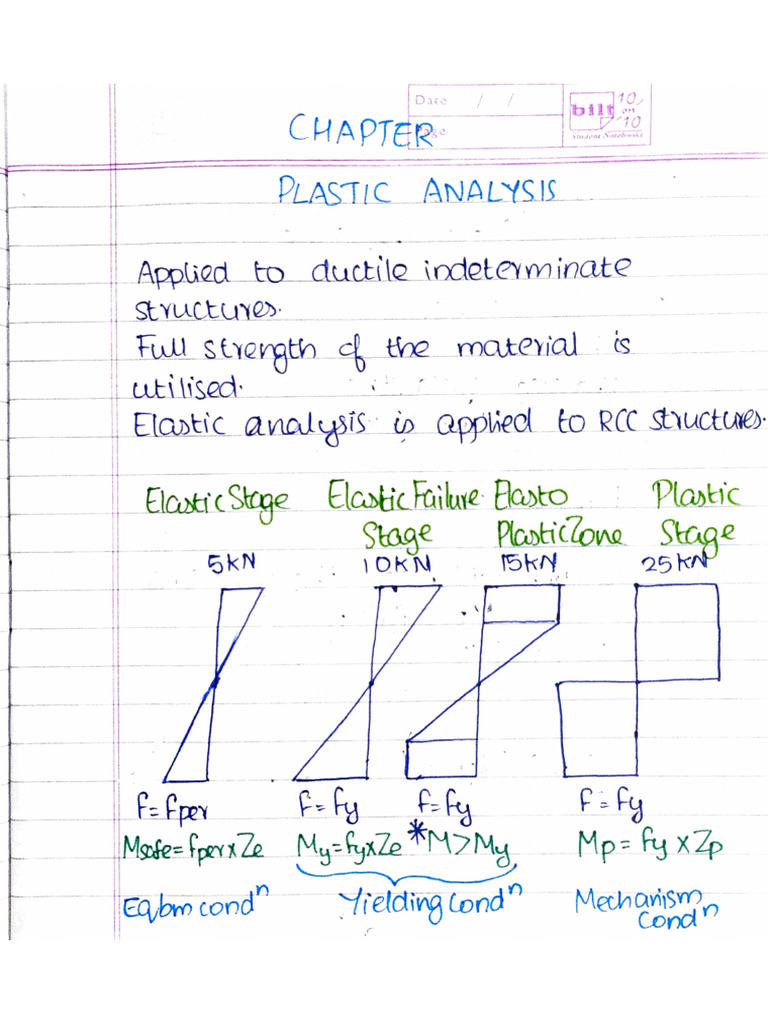 Date / /
Page
bilt 10 on 10
Student Notebooks
CHAPTER
PLASTIC ANALYSIS
Applied to ductile indeterminate
structures.
Full strength of the material is
utilised.
Elastic analysis is applied to RCC structures.
Elastic Stage Elastic Failure Elasto Plastic
Stage Plastic Zone Stage
5KN 10KN 15KN 25KN
f=fper f=fy f=fy f=fy
Msafe=fper×Ze My=fy×Ze *M>My Mp=fy×Zp
Eqbm condⁿ Yielding Condⁿ Mechanism
Condⁿ